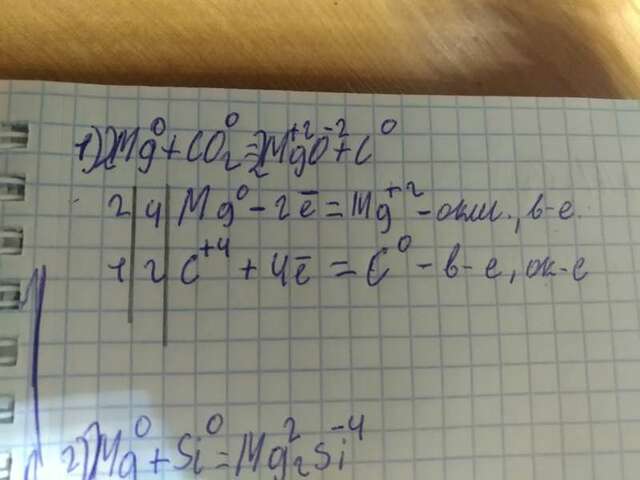 1) 2Mg⁰ + CO₂⁰ = 2Mg⁺²O⁻² + C⁰
2 | 4 | Mg⁰ - 2ē = Mg⁺² - окисл., в-е.
1 | 2 | C⁺⁴ + 4ē = C⁰ - в-е, ок-е
2) Mg⁰ + Si⁰ = Mg₂²Si⁻⁴